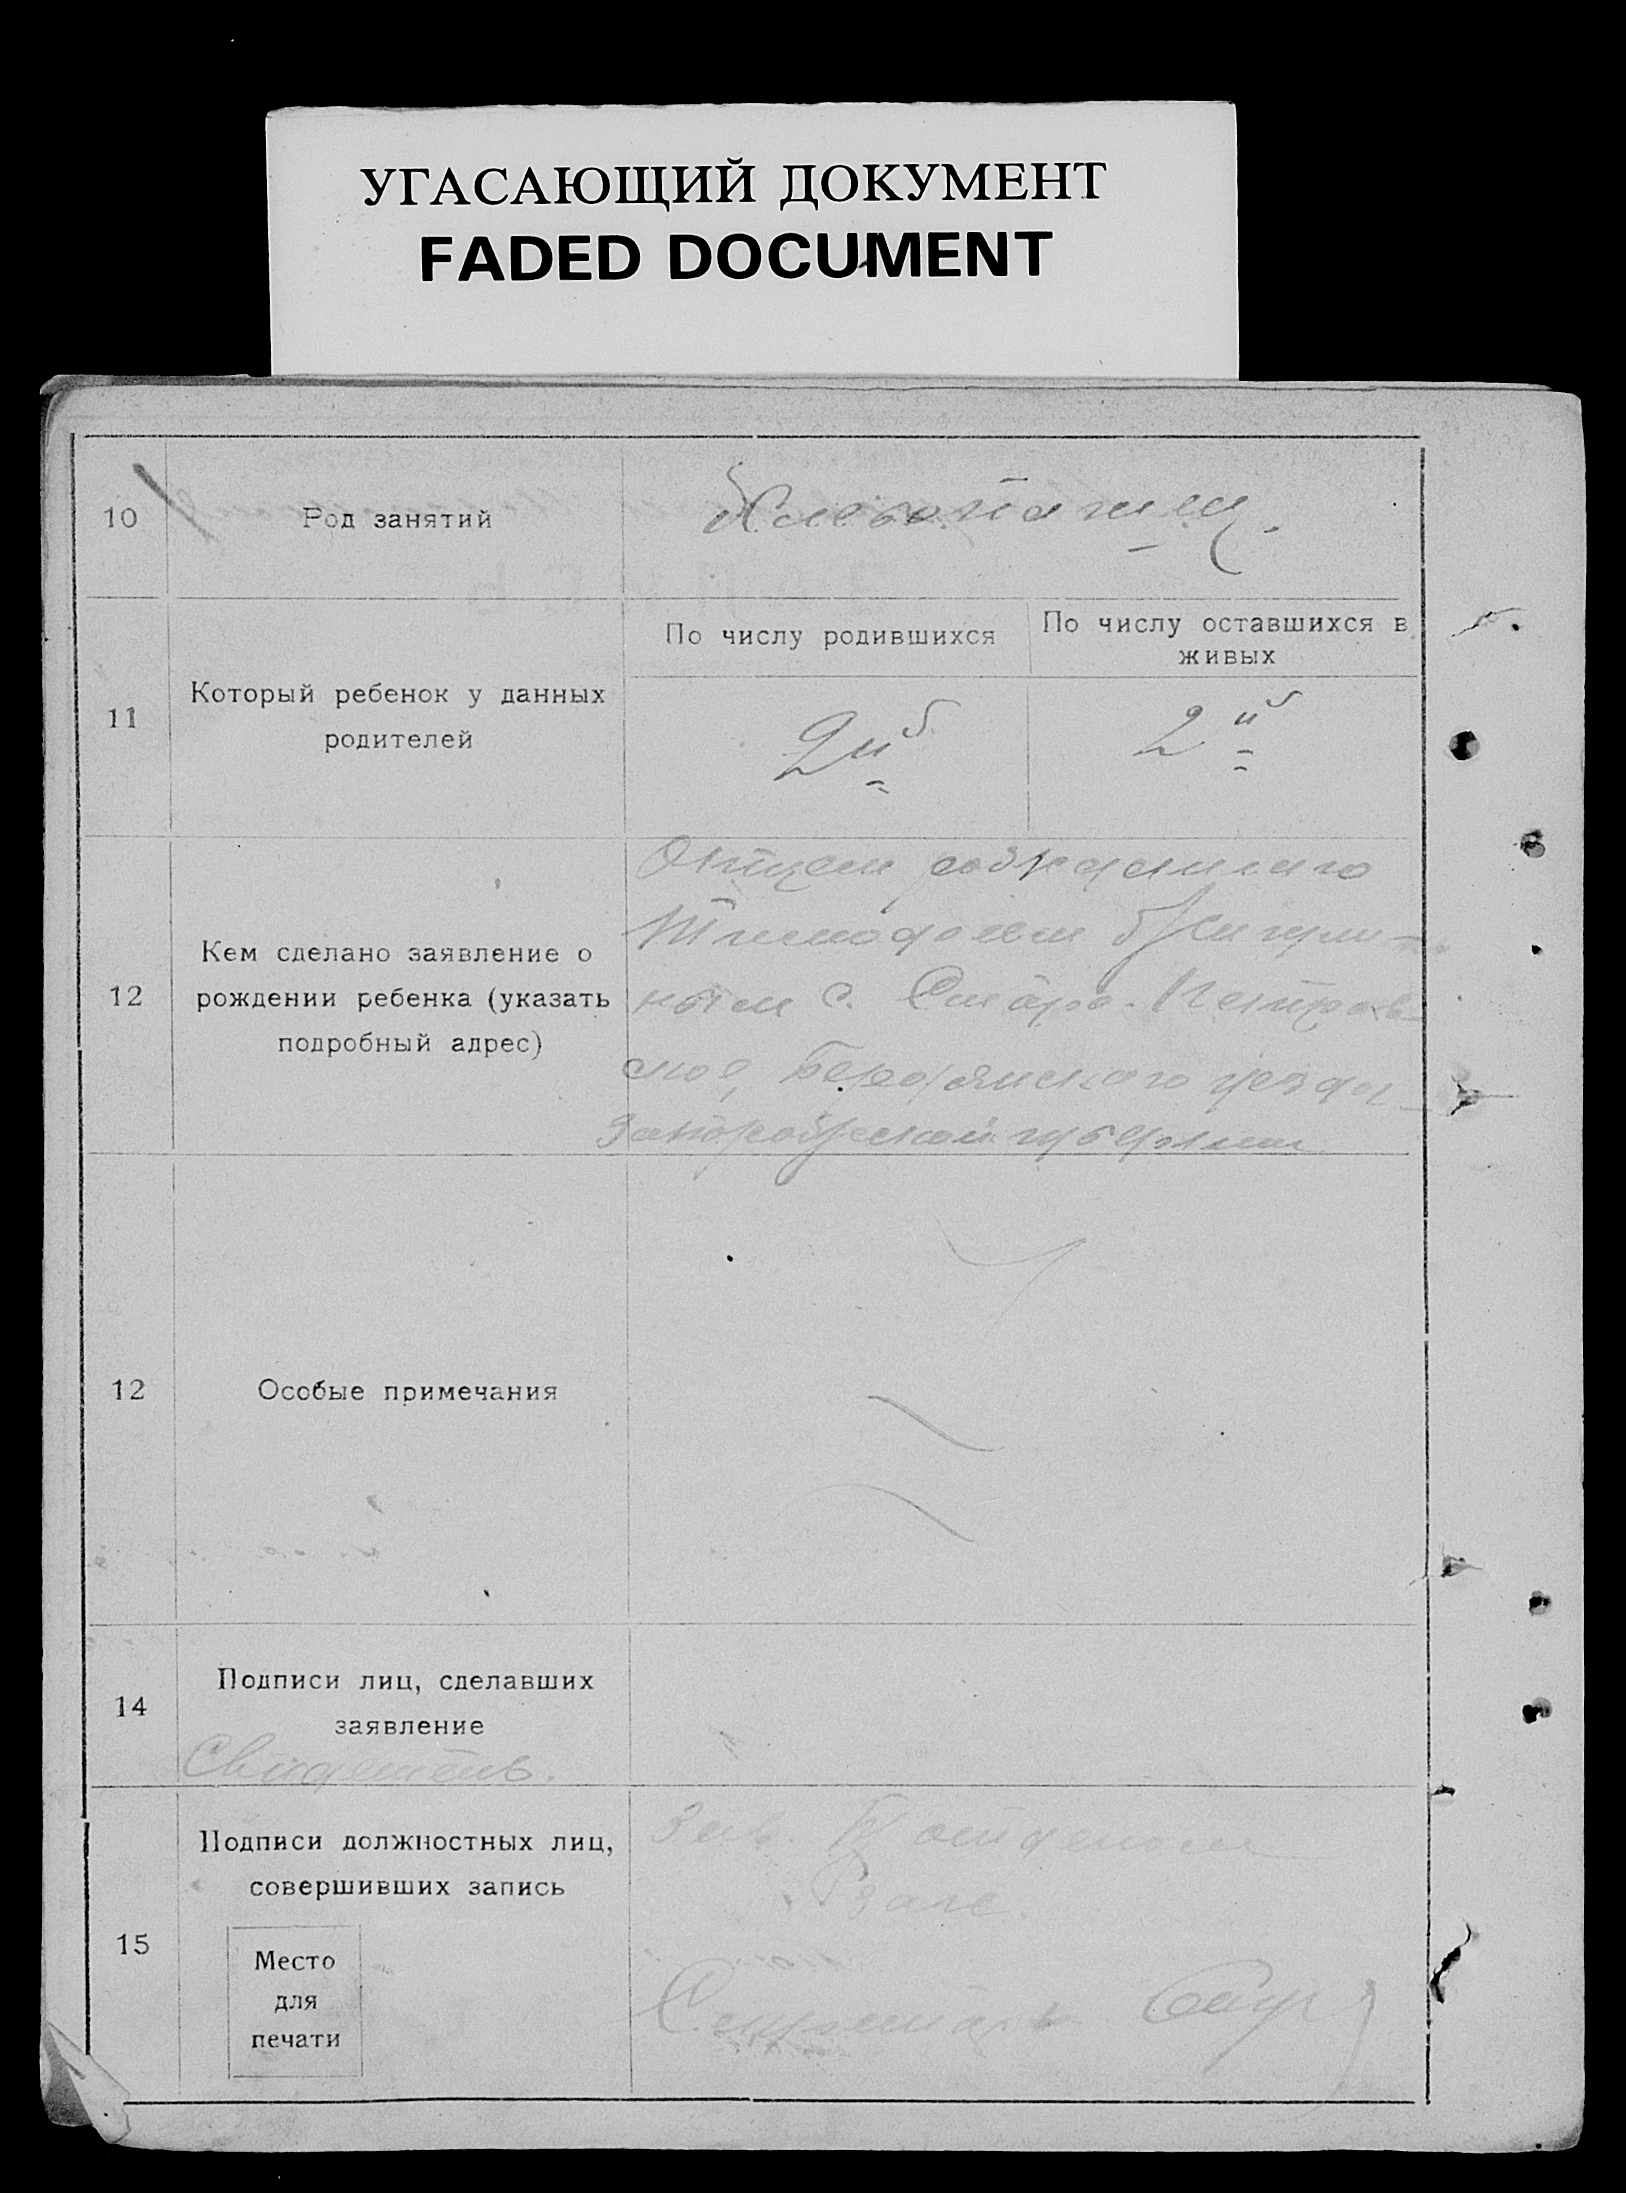 УГАСАЮЩИЙ ДОКУМЕНТ
FADED DOCUMENT
10
Род занятий
Хлебопашец.
11
Который ребенок у данных
родителей
По числу родившихся
По числу оставшихся в
живых
2ий
2ий
12
Кем сделано заявление о
рождении ребенка (указать
подробный адрес)
Отцем
Тимофеем
ным с. Старо-Петров-
ское, Бердянского уезда
Запорожской губернии
12
Особые примечания
14
Подписи лиц, сделавших
заявление
Свидетель.
15
Подписи должностных лиц,
совершивших запись
Место
для
печати
Зав.
Секретарь